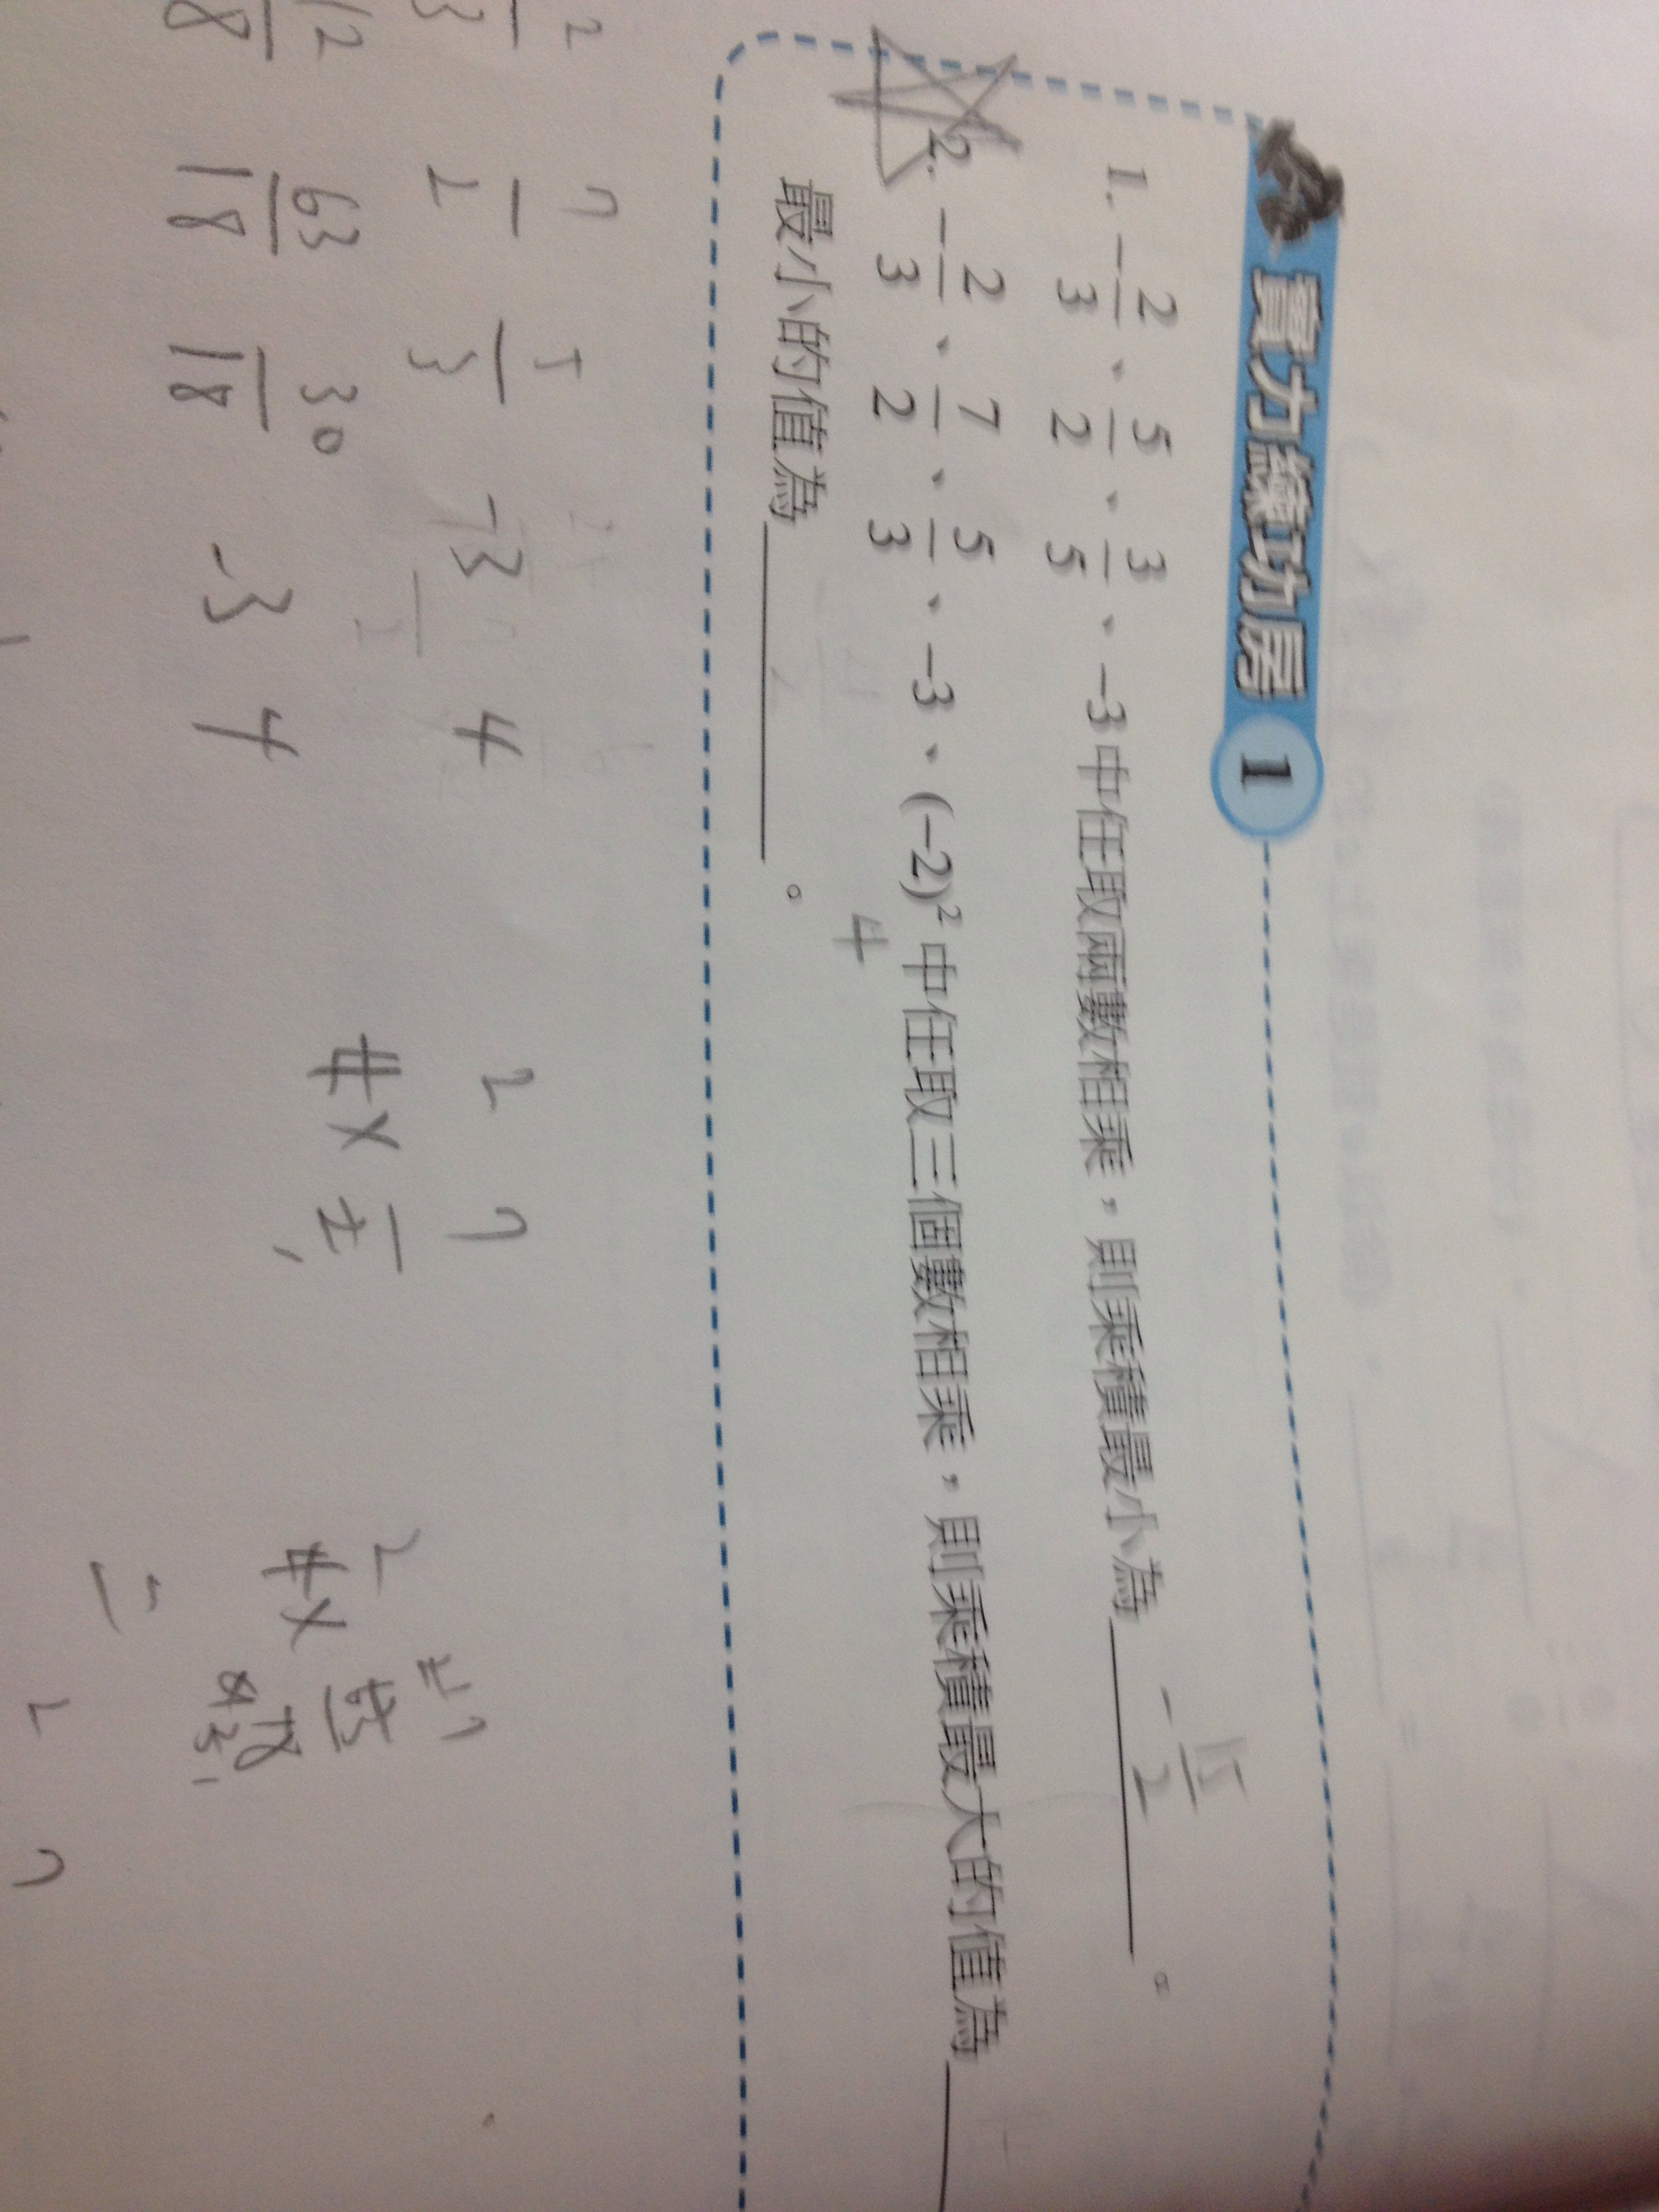 實力練功房 1
1. -2/3、5/2、3/5、-3 中任取兩數相乘，則乘積最小為 -15/2 。
2. -2/3、7/2、5/3、-3、(-2)² 中任取三個數相乘，則乘積最大的值為
4
最小的值為 。
2/3 7/2 5/3 -3 4
12/18 63/18 30/18 -3 4
2 7
4×